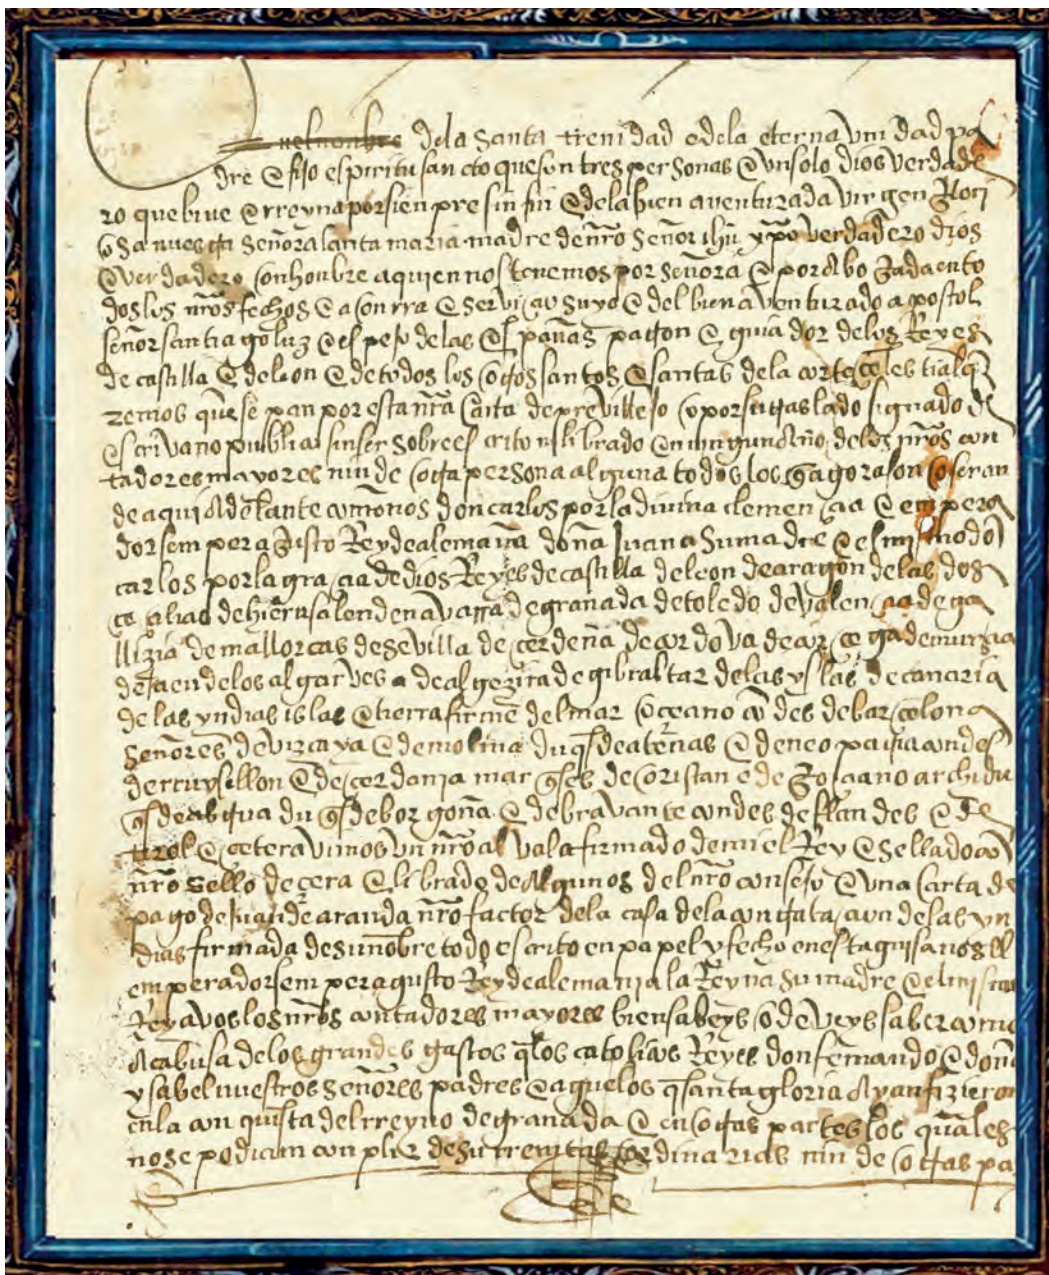 en el nonbre dela santa trenidad e dela eterna vnidad pa
dre e fijo e spiritu santo que son tres personas e vn solo dios verdade
ro que biue e rreyna por sienpre sin fin e dela bien auenturada virgen glori
osa nuestra señora santa maria madre de nro señor ihu xpo verdadero dios
e verdadero onbre a quien nos tenemos por señora e por abogada en to
dos los nros fechos e a onrra e seruicio suyo e del bienaventurado apostol
señor santiago luz e espejo delas españas patron e guiador delos Reyes
de castilla e de leon e de todos los otros santos e santas dela corte celestial q
remos que sepan por esta nra carta de preuillejo o por su traslado signado de
escriuano publico sin ser sobre escrito ni librado en ningund año delos nros con
tadores mayores nin de otra persona alguna todos los q agora son o seran
de aqui adelante como nos don carlos por la diuina clemencia e enpera
dor semper agusto Rey de alemaña doña Juana su madre e el mismo don
carlos por la gracia de dios Reyes de castilla de leon de aragon delas dos
cecilias de hierusalen de navarra de granada de toledo de valencia de ga
llizia de mallorcas de sevilla de cerdeña de cordova de corcega de murcia
de jaen delos algarves de algezira de gibraltar delas yslas de canaria
de las yndias islas e tierra firme del mar oceano condes de barcelona
señores de vizcaya e de molina duqs de atenas e de neopatria condes
de rruysellon e de cerdania marqses de oristan e de gociano archidu
qs de abstria duqs de borgoña e de bravante condes de flandes e de
tirol e cetera vimos vn nro alvala firmado de mi el Rey e sellado con
nro sello de cera e librado de algunos del nro consejo e vna carta de
pago de Juan de aranda nro factor dela casa dela contratacion delas yn
dias firmada de su nonbre todo escrito en papel y fecho en esta guisa nos el
emperador semper agusto Rey de alemania la Reyna su madre e el mismo
Rey a vos los nros contadores mayores bien sabeys o deveys saber como
a cabusa delos grandes gastos q los catolicos Reyes don fernando e doña
ysabel nuestros señores padres e aguelos q santa gloria ayan fizieron
en la conquista del rreyno de granada e en otras partes los quales
no se podian conplir de sus rrentas ordinarias nin de otras pa